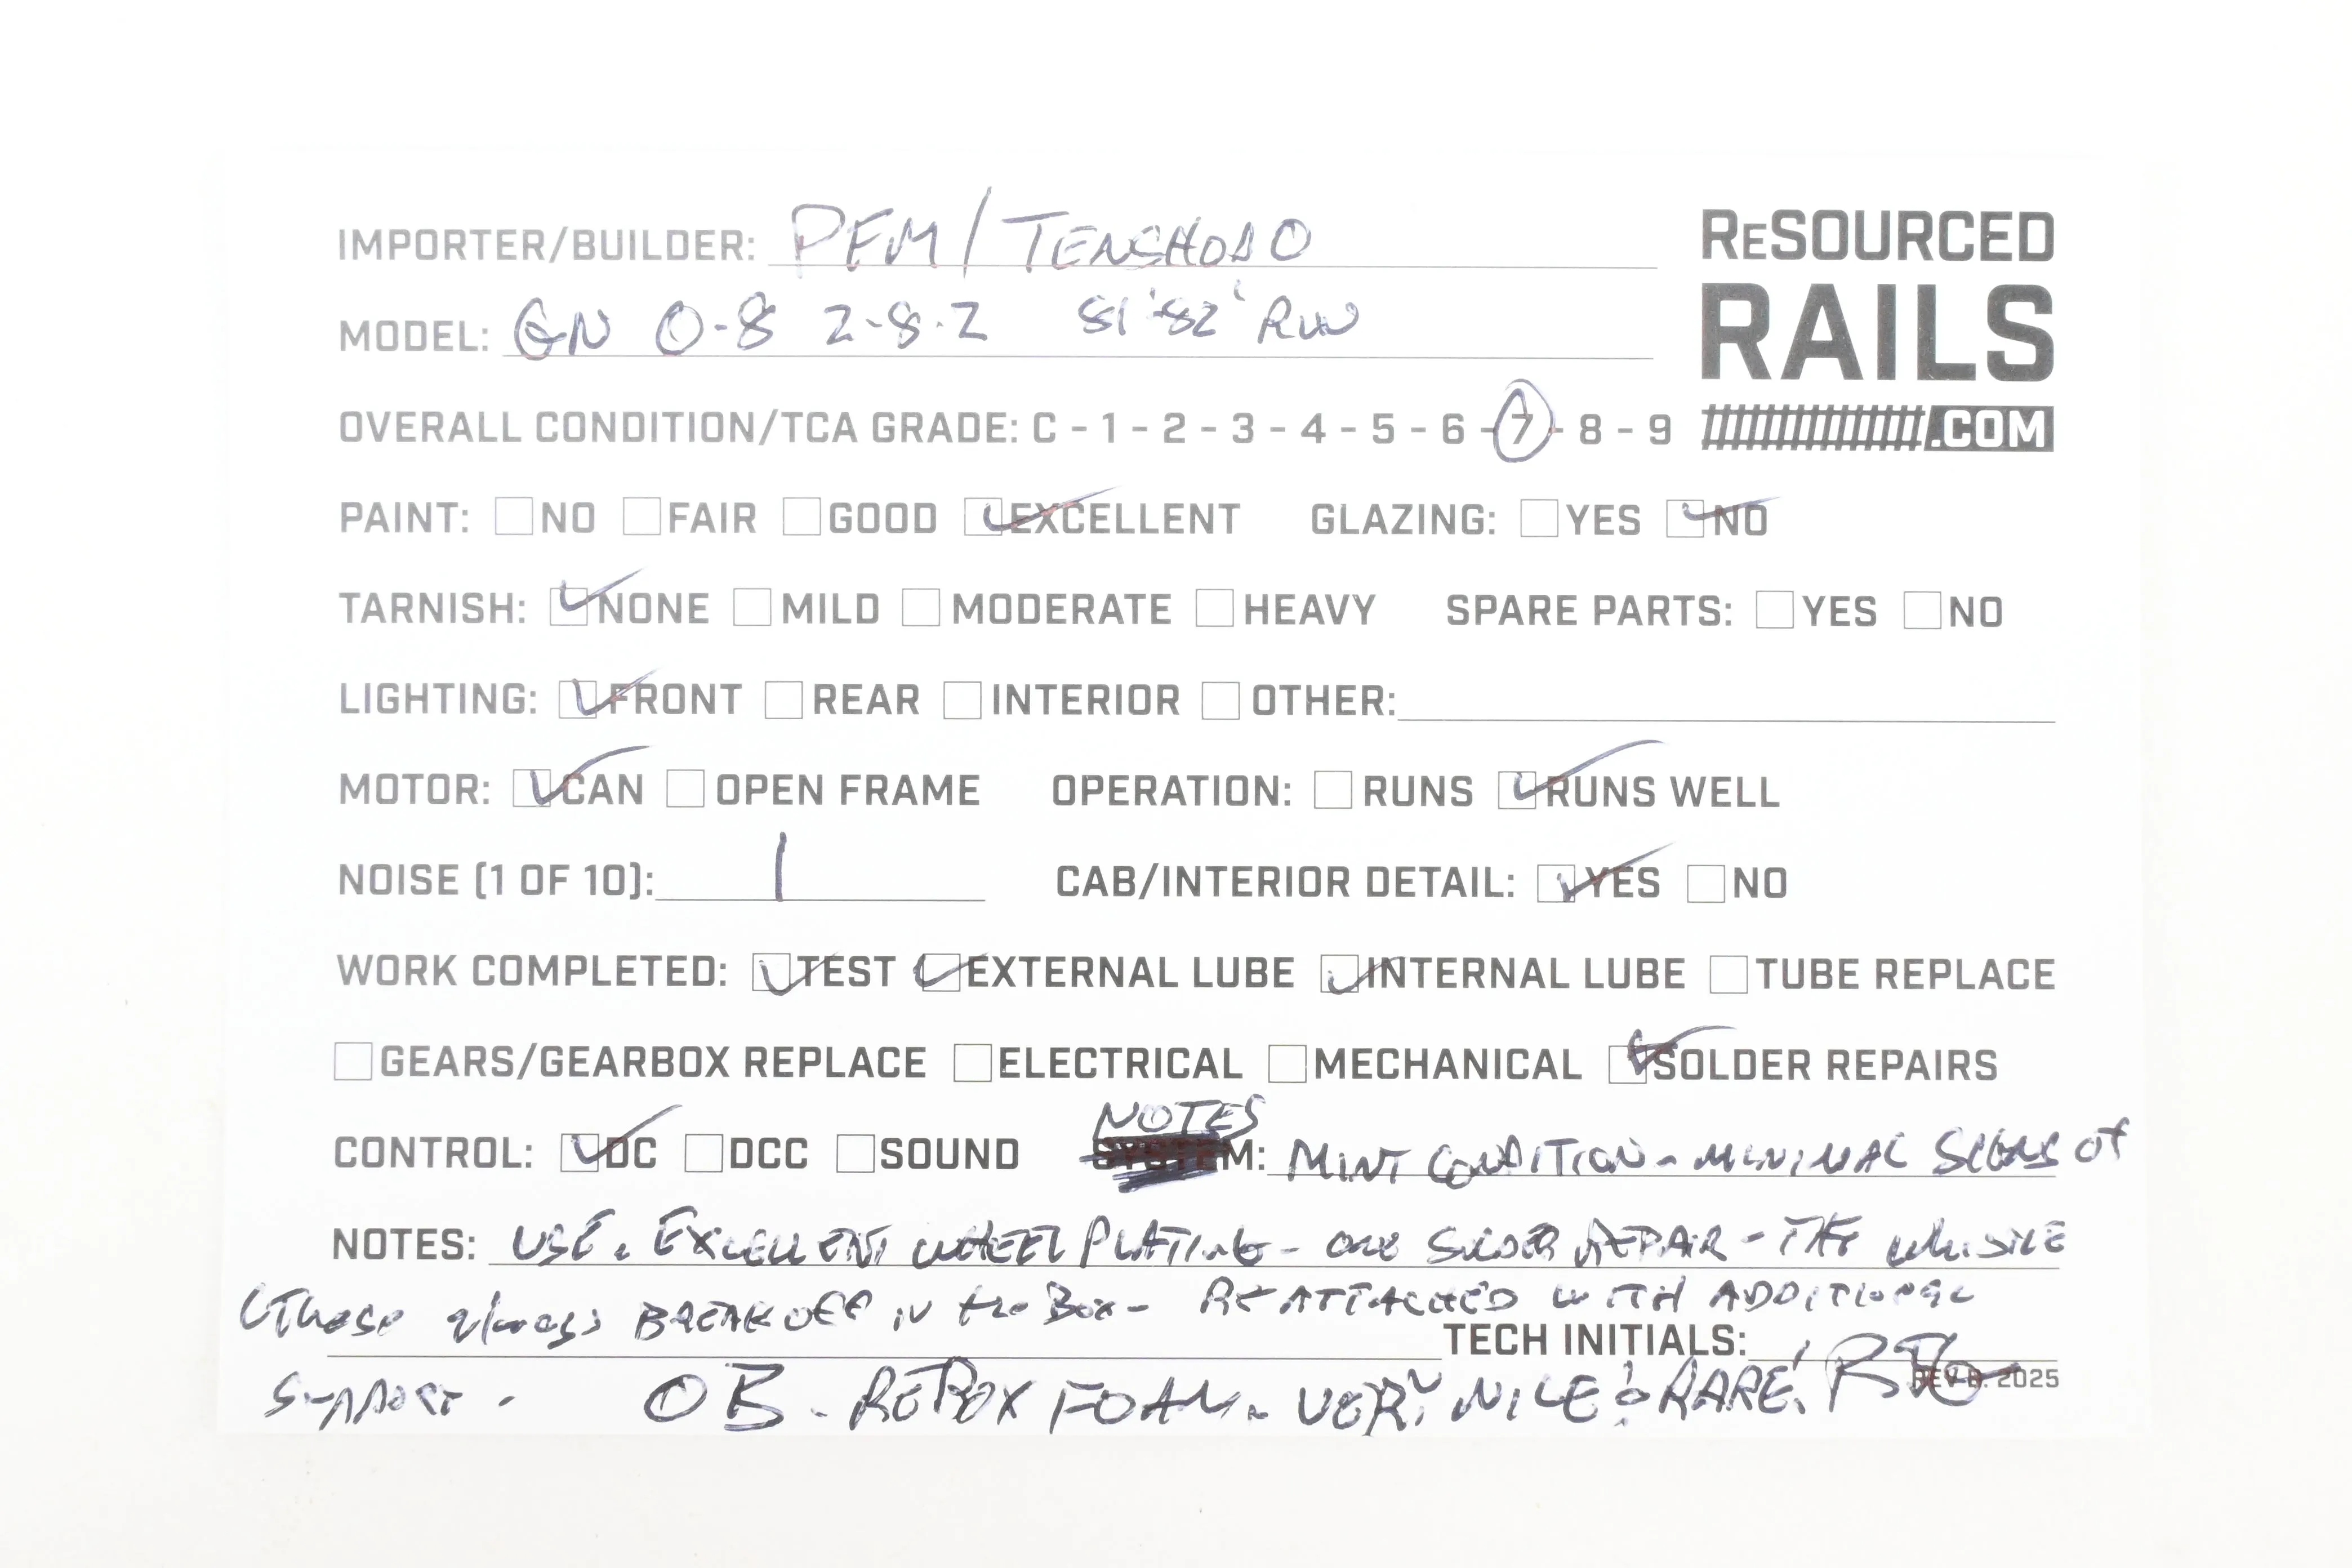 IMPORTER/BUILDER: PFM/TENSHODO
RESOURCED
RAILS
.COM
MODEL: GN O-8 2-8-2 81'-82' RUN
OVERALL CONDITION/TCA GRADE: C - 1 - 2 - 3 - 4 - 5 - 6 - 7 - 8 - 9
PAINT: NO FAIR GOOD EXCELLENT GLAZING: YES NO
TARNISH: NONE MILD MODERATE HEAVY SPARE PARTS: YES NO
LIGHTING: FRONT REAR INTERIOR OTHER:
MOTOR: CAN OPEN FRAME OPERATION: RUNS RUNS WELL
NOISE (1 OF 10): 1 CAB/INTERIOR DETAIL: YES NO
WORK COMPLETED: TEST EXTERNAL LUBE INTERNAL LUBE TUBE REPLACE
GEARS/GEARBOX REPLACE ELECTRICAL MECHANICAL SOLDER REPAIRS
NOTES
CONTROL: DC DCC SOUND SYSTEM: MINT CONDITION - MINIMAL SIGNS OF
NOTES: USE. EXCELLENT WHEEL PLATING - ONE SOLDER REPAIR - THE WHISTLE
(These always BREAK OFF IN the Box - REATTACHED WITH ADDITIONAL
TECH INITIALS:
SUPPORT - OB - REPBOX FOAM. VERY NICE & RARE!
REV B. 2025